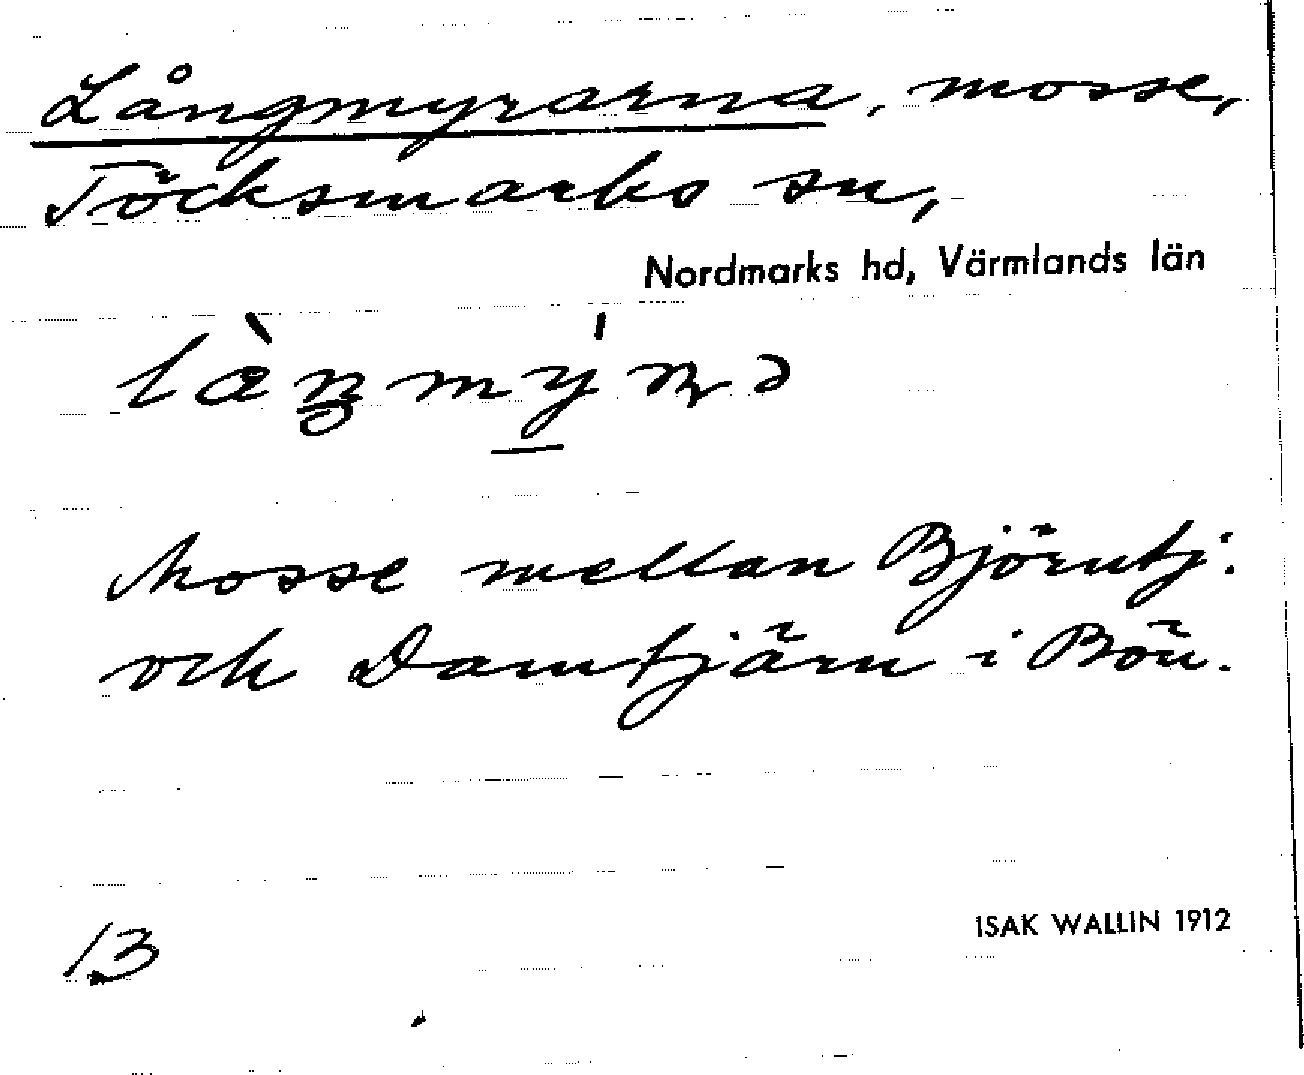 Långmyrarna, mosse,
Töcksmarks sn,
Nordmarks hd, Värmlands län
Mosse mellan Björntj:
och Damtjärn i Bön.
13
ISAK WALLIN 1912